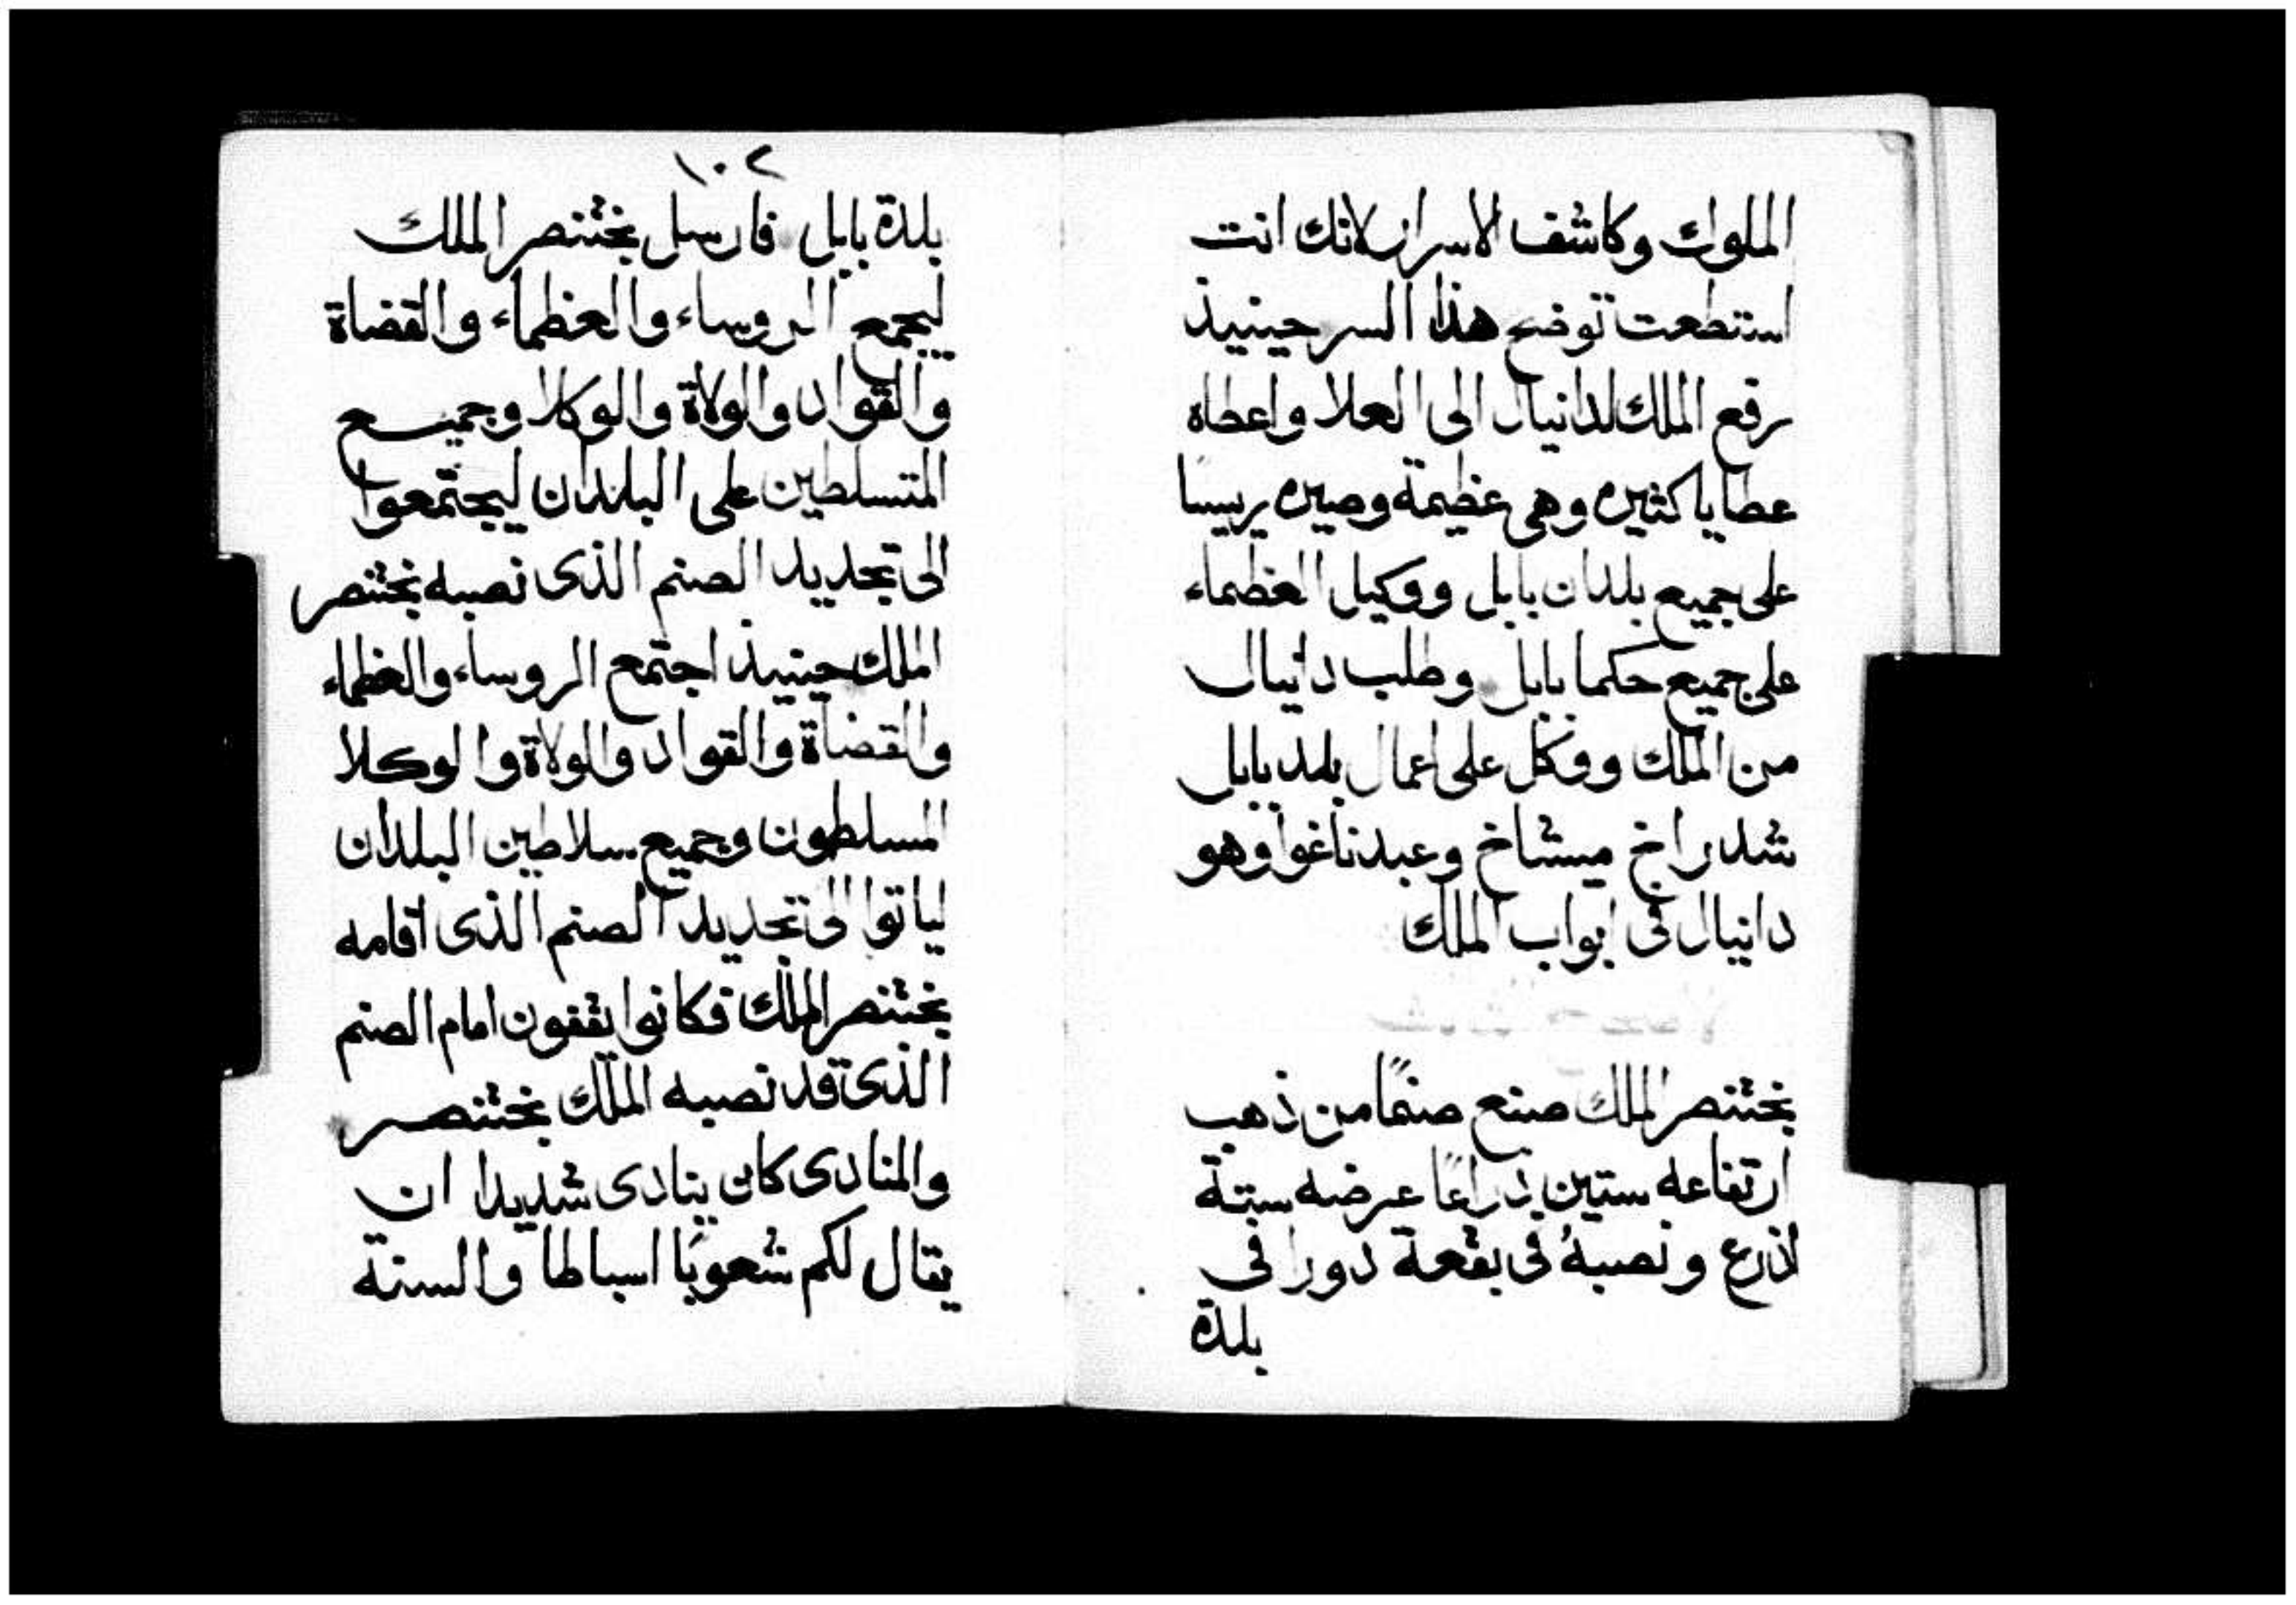 الملوك وكاشف الاسرار لانك انت
استطعت توضح هذا السر حينيذ
رفع الملك لدانيال الى العلا واعطاه
عطايا كثيره وهى عظيمة وصيره رييسا
على جميع بلدان بابل ووكيل العظماء
على جميع حكما بابل وطلب دانيال
من الملك ووكل على اعمال بلد بابل
شدراخ ميشاخ وعبدناغوا وهو
دانيال فى ابواب الملك
بختنصر الملك صنع صنمًا من ذهب
ارتفاعه ستين ذراعًا عرضه ستة
اذرع ونصبهُ فى بقعة دورا فى
بلدة
١٠٢
بلدة بابل فارسل بختنصر الملك
ليجمع الروساء والعظماء والقضاة
والقواد والولاة والوكلا وجميع
المتسلطين على البلدان ليجتمعوا
الى تجديد الصنم الذى نصبه بختنصر
الملك حينيذ اجتمع الروساء والعظماء
والقضاة والقواد والولاة والوكلا
المسلطون وجميع سلاطين البلدان
لياتوا الى تجديد الصنم الذى اقامه
بختنصر الملك فكانوا يقفون امام الصنم
الذى قد نصبه الملك بختنصر
والمنادى كان ينادى شديدا ان
يقال لكم شعوبًا اسباطا والسنة